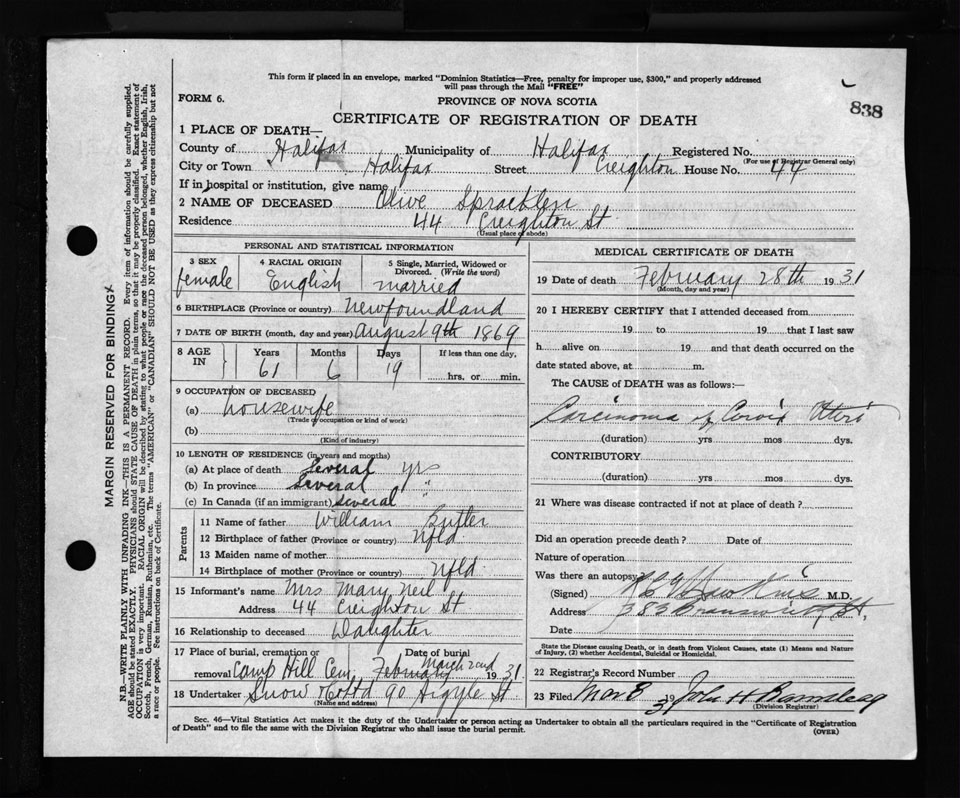 This form if placed in an envelope, marked "Dominion Statistics—Free, penalty for improper use, $300," and properly addressed
will pass through the Mail "FREE"
FORM 6.
PROVINCE OF NOVA SCOTIA
838
CERTIFICATE OF REGISTRATION OF DEATH
1 PLACE OF DEATH—
County of Halifax Municipality of Halifax Registered No.
(For use of Registrar General only)
City or Town Halifax Street Creighton House No. 44
If in hospital or institution, give name
2 NAME OF DECEASED Olive Spracklen
Residence 44 Creighton St
(Usual place of abode)
PERSONAL AND STATISTICAL INFORMATION
3 SEX
female
4 RACIAL ORIGIN
English
5 Single, Married, Widowed or
Divorced. (Write the word)
married
6 BIRTHPLACE (Province or country) Newfoundland
7 DATE OF BIRTH (month, day and year) August 9th 1869
8 AGE IN
Years 61
Months 6
Days 19
If less than one day,
hrs. or min.
9 OCCUPATION OF DECEASED
(a) housewife
(Trade, occupation or kind of work)
(b)
(Kind of industry)
10 LENGTH OF RESIDENCE (in years and months)
(a) At place of death Several yrs
(b) In province Several "
(c) In Canada (if an immigrant) Several "
Parents
11 Name of father William Butler
12 Birthplace of father (Province or country) Nfld
13 Maiden name of mother
14 Birthplace of mother (Province or country) Nfld
15 Informant's name Mrs Mary Neil
Address 44 Creighton St
16 Relationship to deceased Daughter
17 Place of burial, cremation or removal Camp Hill Cem,
Date of burial
February March 2nd 1931
18 Undertaker Snow & Co Ltd 90 Argyle St
(Name and address)
MEDICAL CERTIFICATE OF DEATH
19 Date of death February 28th 1931
(Month, day and year)
20 I HEREBY CERTIFY that I attended deceased from
19 to 19 that I last saw
h alive on 19 and that death occurred on the
date stated above, at m.
The CAUSE of DEATH was as follows:—
Carcinoma of Cervix Uteri
(duration) yrs mos dys.
CONTRIBUTORY
(duration) yrs mos dys.
21 Where was disease contracted if not at place of death?
Did an operation precede death? Date of
Nature of operation
Was there an autopsy
(Signed) Hawkins M.D.
Address 383 Brunswick St,
Date
State the Disease causing Death, or in death from Violent Causes, state (1) Means and Nature
of Injury, (2) whether Accidental, Suicidal or Homicidal.
22 Registrar's Record Number
23 Filed Mar 8 1931 John H Barnstead
(Division Registrar)
Sec. 46—Vital Statistics Act makes it the duty of the Undertaker or person acting as Undertaker to obtain all the particulars required in the "Certificate of Registration
of Death" and to file the same with the Division Registrar who shall issue the burial permit.
(OVER)
MARGIN RESERVED FOR BINDING
N.B.—WRITE PLAINLY WITH UNFADING INK—THIS IS A PERMANENT RECORD. Every item of information should be carefully supplied.
AGE should be stated EXACTLY. PHYSICIANS should STATE CAUSE OF DEATH in plain terms, so that it may be properly classified. Exact statement of
OCCUPATION is very important. RACIAL ORIGIN will be described by stating to what people or race the deceased person belonged, whether English, Irish,
Scotch, French, German, Russian, Ruthenian, etc. The terms "AMERICAN" or "CANADIAN" SHOULD NOT BE USED as they express citizenship but not
a race or people. See instructions on back of Certificate.